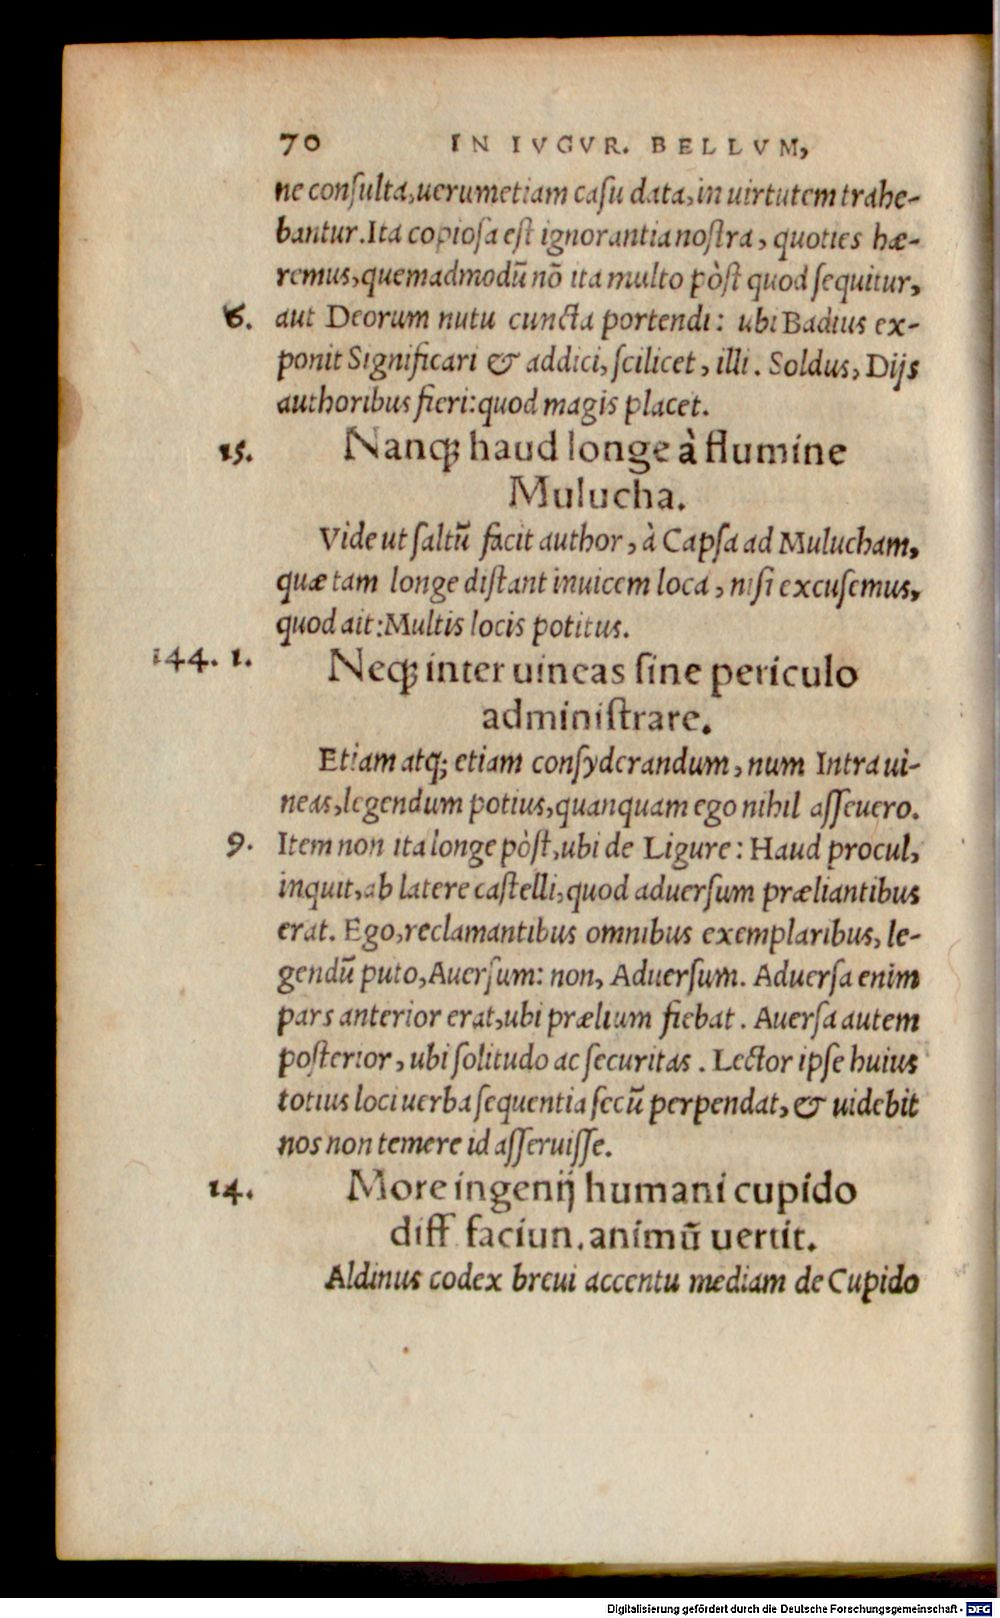 70 IN IVGVR. BELLVM,
ne conſulta, uerumetiam caſu data, in uirtutem trahe-
bantur. Ita copioſa eſt ignorantia noſtra, quoties hæ-
remus, quemadmodū nō ita multo pòſt quod ſequitur,
6. aut Deorum nutu cuncta portendi: ubi Badius ex-
ponit Significari & addici, ſcilicet, illi. Soldus, Dijs
authoribus fieri: quod magis placet.
15. Nanq; haud longe à flumine
Mulucha.
Vide ut ſaltū facit author, à Capſa ad Mulucham,
quæ tam longe diſtant inuicem loca, niſi excuſemus,
quod ait: Multis locis potitus.
144. 1. Neq; inter uineas ſine periculo
adminiſtrare.
Etiam atq; etiam conſyderandum, num Intra ui-
neas, legendum potius, quanquam ego nihil aſſeuero.
9. Item non ita longe pòſt, ubi de Ligure: Haud procul,
inquit, ab latere caſtelli, quod aduerſum præliantibus
erat. Ego, reclamantibus omnibus exemplaribus, le-
gendū puto, Auerſum: non, Aduerſum. Aduerſa enim
pars anterior erat, ubi prælium fiebat. Auerſa autem
poſterior, ubi ſolitudo ac ſecuritas. Lector ipſe huius
totius loci uerba ſequentia ſecū perpendat, & uidebit
nos non temere id aſſeruiſſe.
14. More ingenij humani cupido
diff faciun. animū uertit.
Aldinus codex breui accentu mediam de Cupido
Digitalisierung gefördert durch die Deutsche Forschungsgemeinschaft - DFG